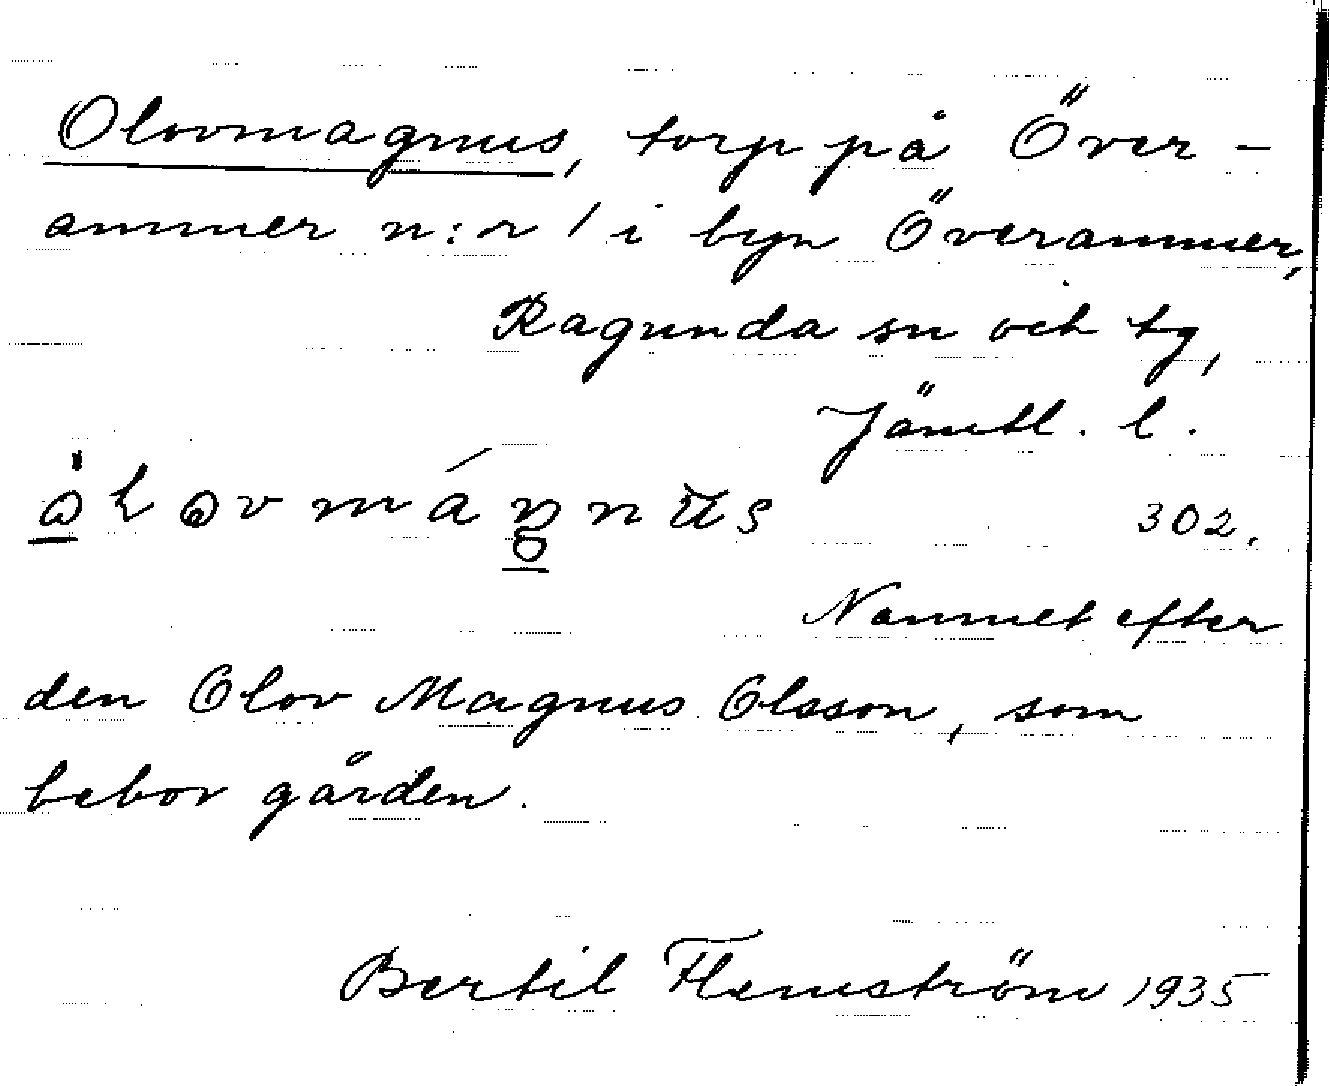 Olovmagnus, torp på Över-
ammer n:r 1 i byn Överammer,
Ragunda sn och tg,
Jämtl. l.
302.
Namnet efter
den Olov Magnus Olsson, som
bebor gården.
Bertil Flemström 1935